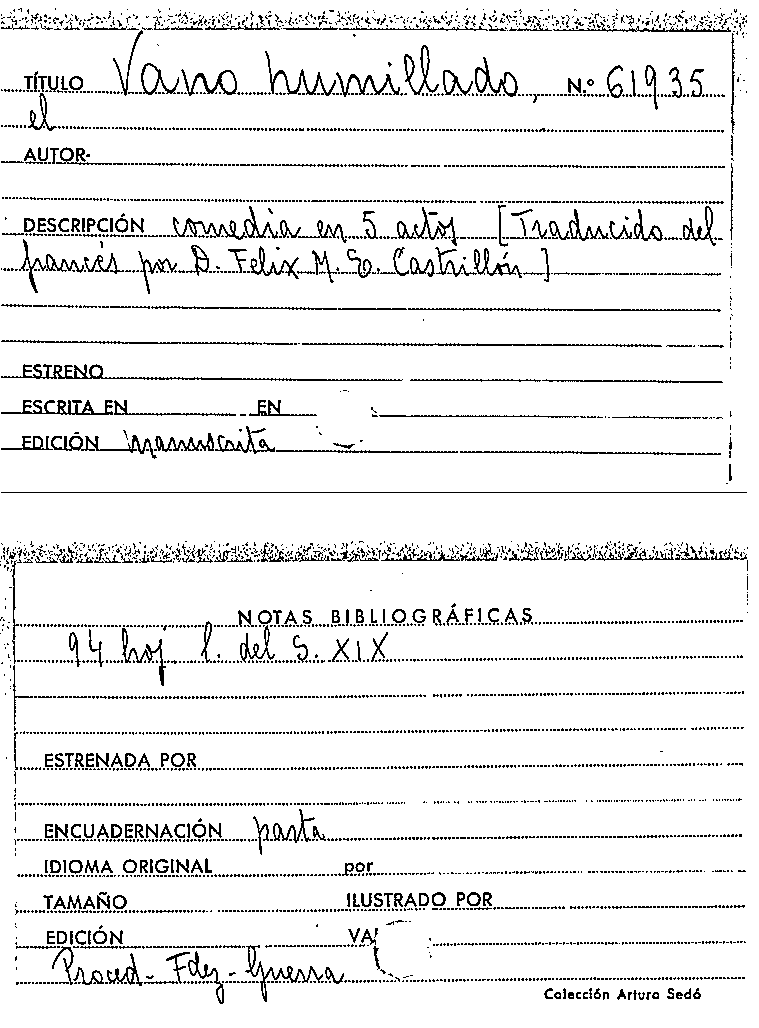 TÍTULO Vano humillado, N.º 61935
el
AUTOR-
DESCRIPCIÓN comedia en 5 actos [Traducido del
francés por D. Felix M. E. Castrillón]
ESTRENO
ESCRITA EN EN
EDICIÓN manuscrita
NOTAS BIBLIOGRÁFICAS
94 hoj l. del S. XIX
ESTRENADA POR
ENCUADERNACIÓN pasta
IDIOMA ORIGINAL por
TAMAÑO ILUSTRADO POR
EDICIÓN VA
Proced- Fdez-Guerra
Colección Arturo Sedó